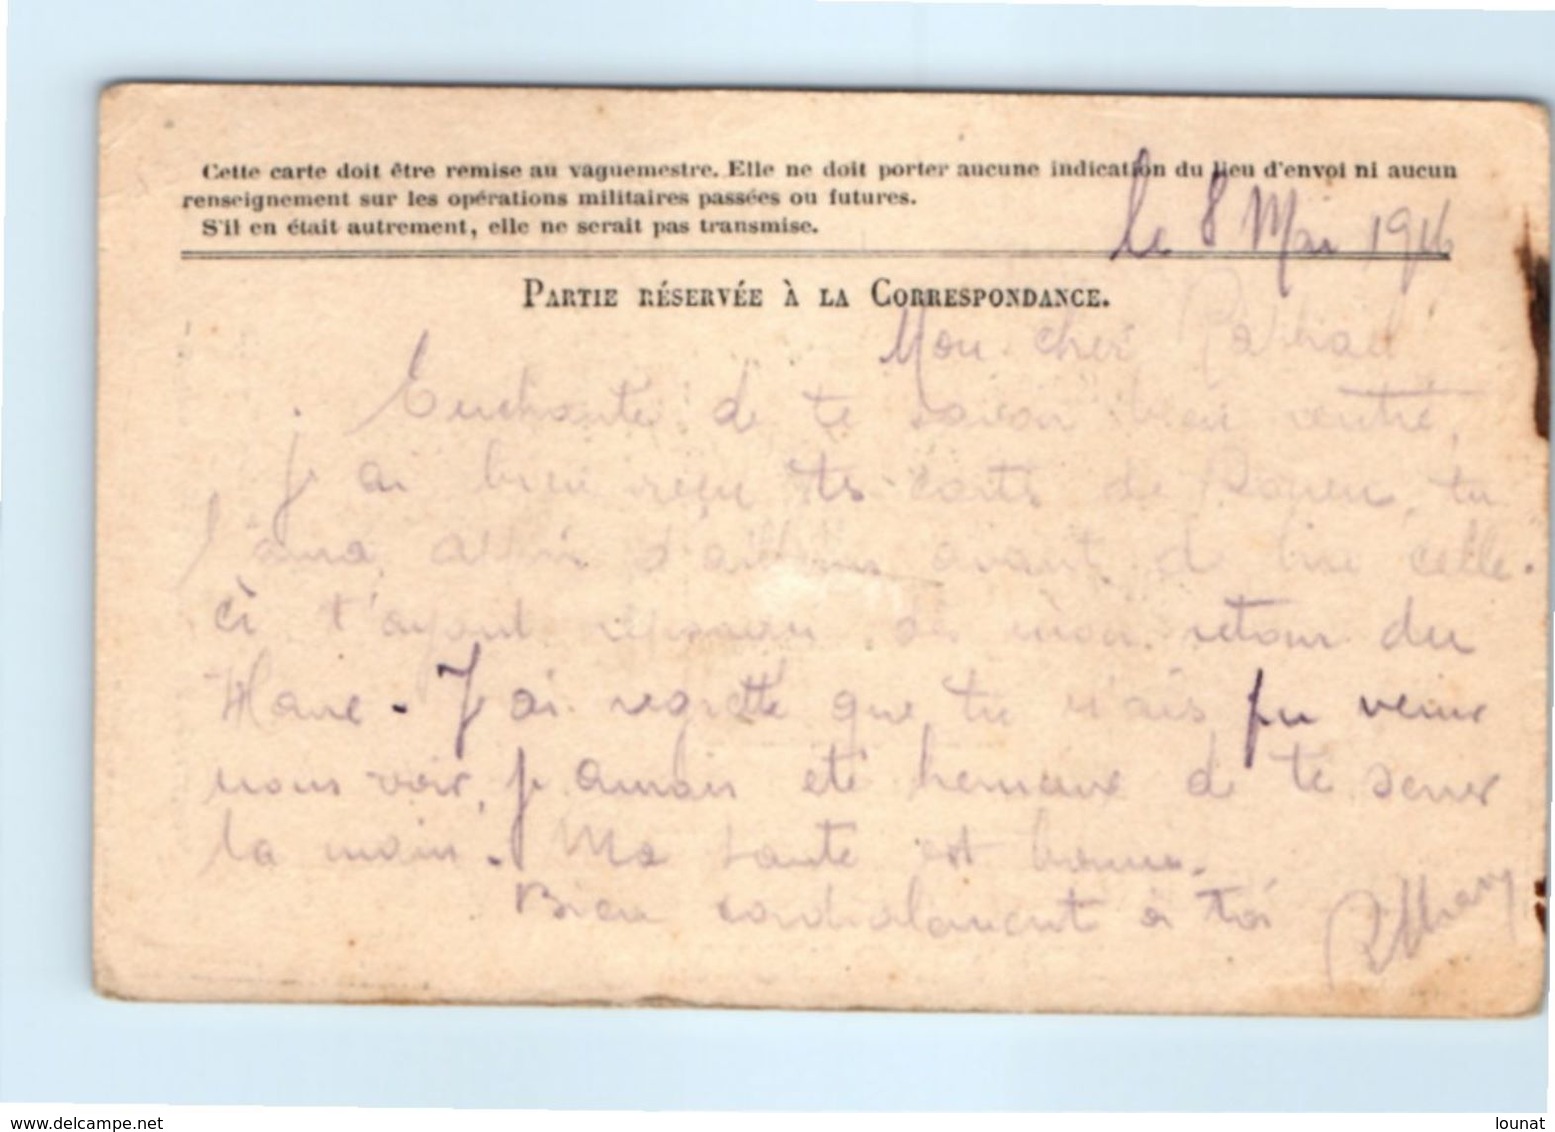 Cette carte doit être remise au vaguemestre. Elle ne doit porter aucune indication du lieu d'envoi ni aucun
renseignement sur les opérations militaires passées ou futures.
S'il en était autrement, elle ne serait pas transmise.
le 8 Mai 1916
PARTIE RÉSERVÉE À LA CORRESPONDANCE.
Mon cher
Enchanté de te savoir bien rentré,
j'ai bien reçu tes cartes de Rouen, tu
d'ailleurs avant de lire celle-
ci t'ayant dès mon retour du
Havre. J'ai regretté que tu n'ais pu venir
nous voir, j'aurais été heureux de te serrer
la main. Ma santé est bonne.
Bien cordialement à toi
www.delcampe.net
lounat